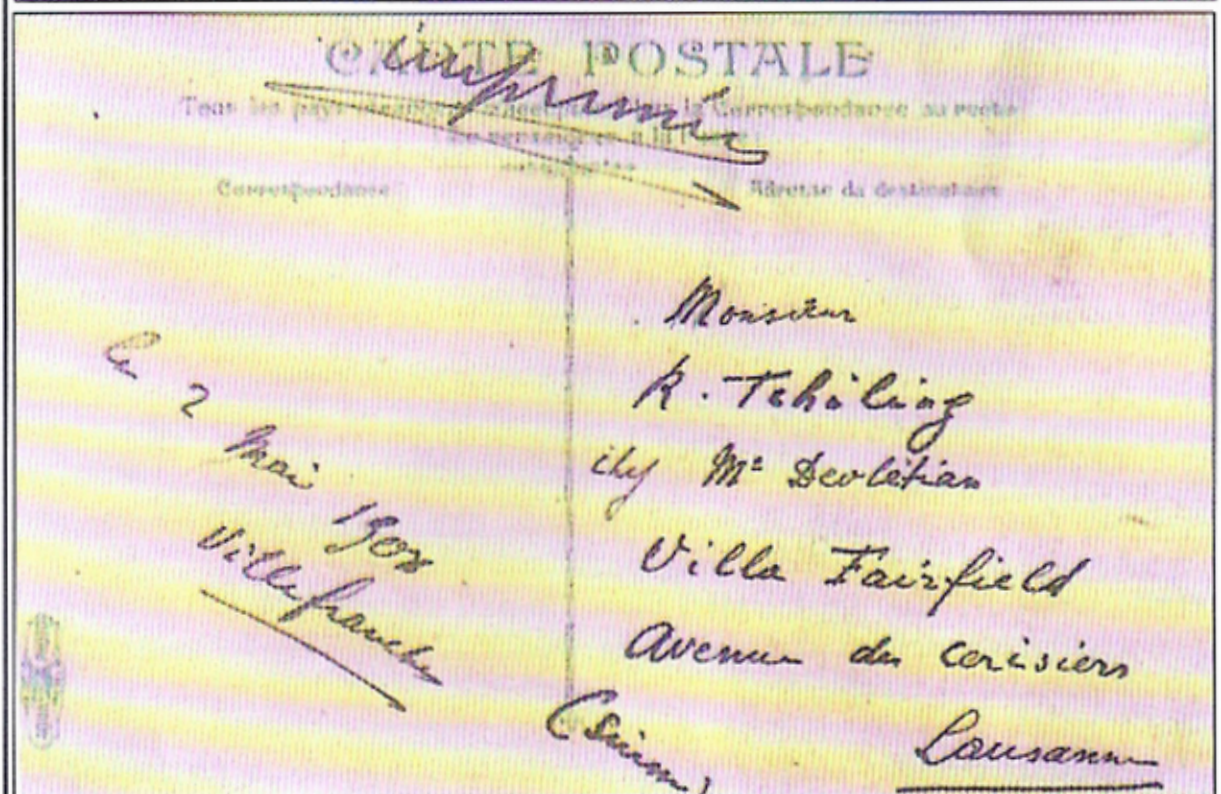 CARTE POSTALE
imprimée
Tous les pays la Correspondance au recto
à la
Correspondance
Adresse du destinataire
le 2
Mai 1908
Villefranche
Monsieur
K. Tchiling
Mr Devletian
Villa Fairfield
Avenue des Cerisiers
Lausanne
(Suisse)